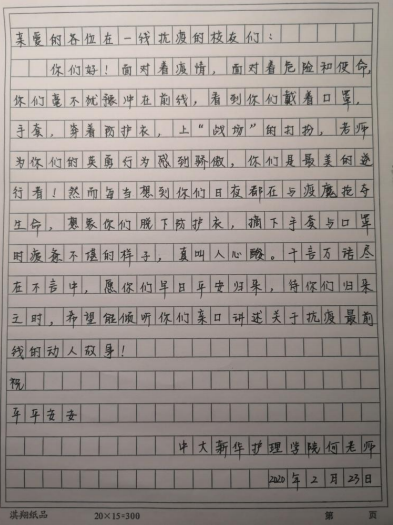 亲爱的各位在一线抗疫的校友们：
你们好！面对着疫情，面对着危险和使命，
你们毫不犹豫冲在前线，看到你们戴着口罩，
手套，穿着防护衣，上“战场”的打扮，老师
为你们的英勇行为感到骄傲，你们是最美的逆
行者！然而每当想到你们日夜都在与疫魔抢夺
生命，想象你们脱下防护衣，摘下手套与口罩
时疲惫不堪的样子，真叫人心酸。千言万语尽
在不言中，愿你们早日平安归来，待你们归来
之时，希望能倾听你们亲口讲述关于抗疫最前
线的动人故事！
祝
平平安安
中大新华护理学院何老师
2020年2月23日
20×15=300
第 页